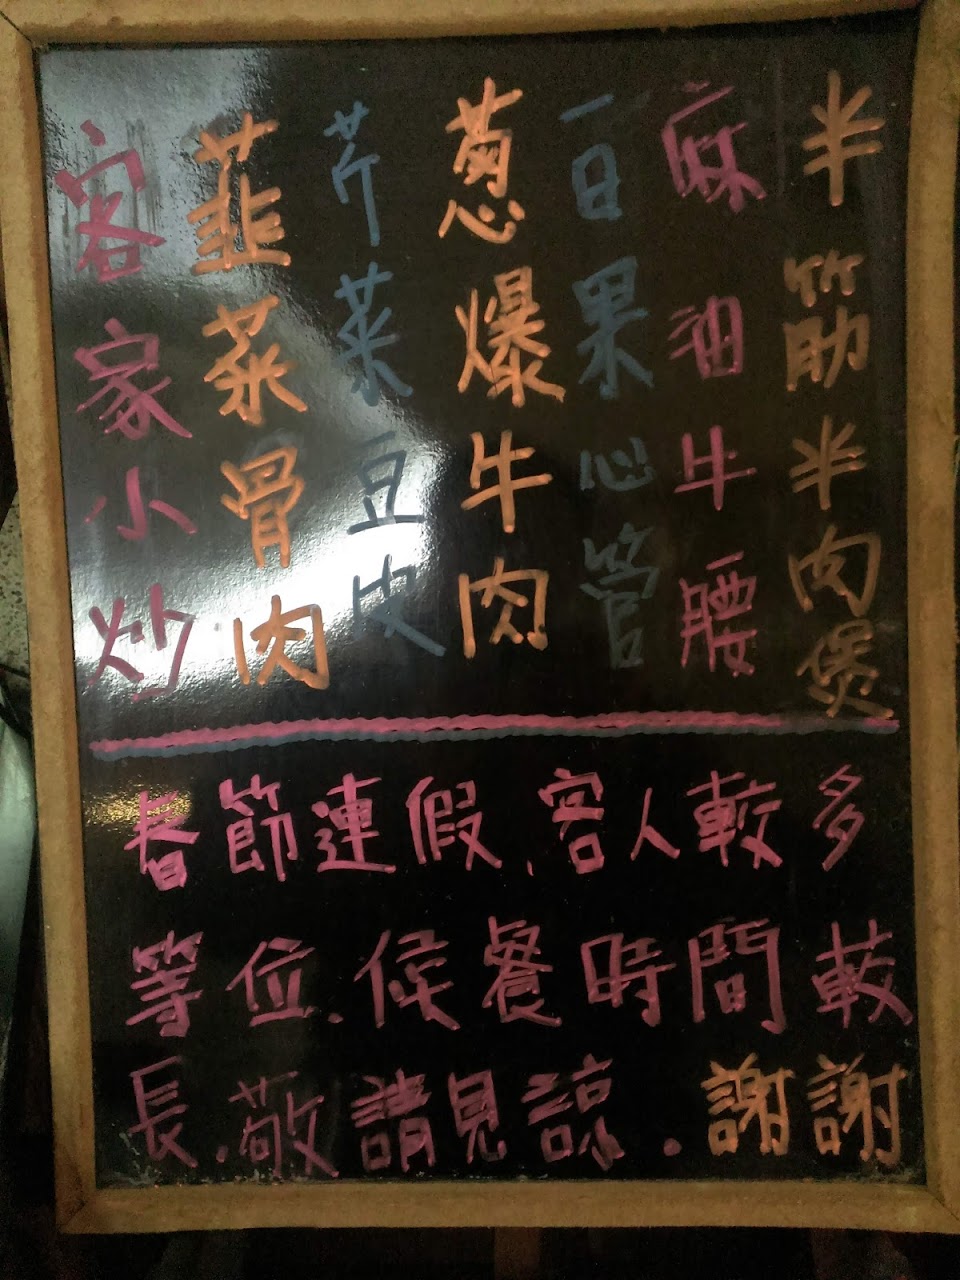 半筋半肉煲
麻油牛腰
百果心管
葱爆牛肉
芹菜豆皮
韮菜骨肉
客家小炒
春節連假、客人較多
等位、候餐時間較
長、敬請見諒.謝謝